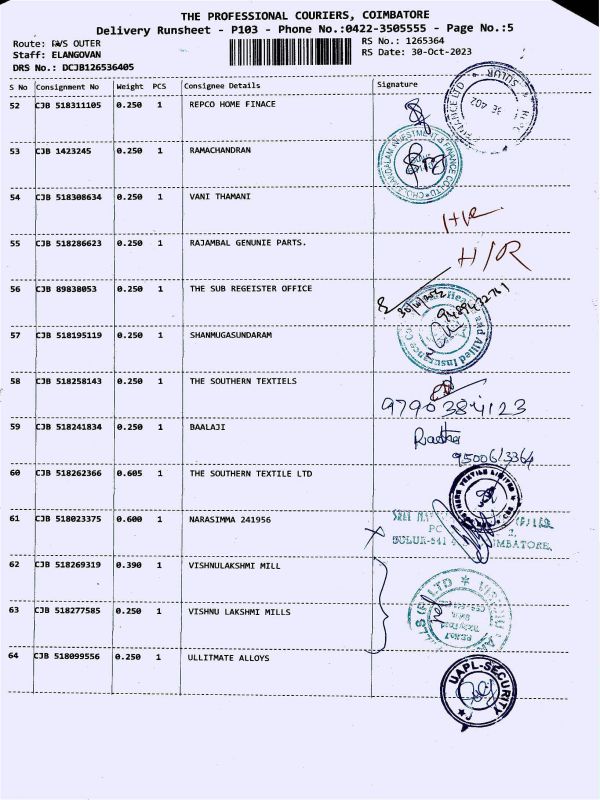 THE PROFESSIONAL COURIERS, COIMBATORE
Delivery Runsheet - P103 - Phone No.:0422-3505555 - Page No.:5
Route: RVS OUTER
RS No.: 1265364
Staff: ELANGOVAN
RS Date: 30-Oct-2023
DRS No.: DCJB126536405
S No Consignment No Weight PCS Consignee Details Signature
52 CJB 518311105 0.250 1 REPCO HOME FINACE
SULUR
53 CJB 1423245 0.250 1 RAMACHANDRAN
CHOLAMANDALAM INVESTMENT & FINANCE CO LTD
54 CJB 518308634 0.250 1 VANI THAMANI
55 CJB 518286623 0.250 1 RAJAMBAL GENUNIE PARTS.
H/R
56 CJB 89838053 0.250 1 THE SUB REGEISTER OFFICE
57 CJB 518195119 0.250 1 SHANMUGASUNDARAM
Health and Allied Insurance Co
58 CJB 518258143 0.250 1 THE SOUTHERN TEXTIELS
9790384123
59 CJB 518241834 0.250 1 BAALAJI
Radha
9500613364
60 CJB 518262366 0.605 1 THE SOUTHERN TEXTILE LTD
61 CJB 518023375 0.600 1 NARASIMMA 241956
SULUR-641
62 CJB 518269319 0.390 1 VISHNULAKSHMI MILL
63 CJB 518277585 0.250 1 VISHNU LAKSHMI MILLS
64 CJB 518099556 0.250 1 ULLITMATE ALLOYS
UAPL-SECURITY